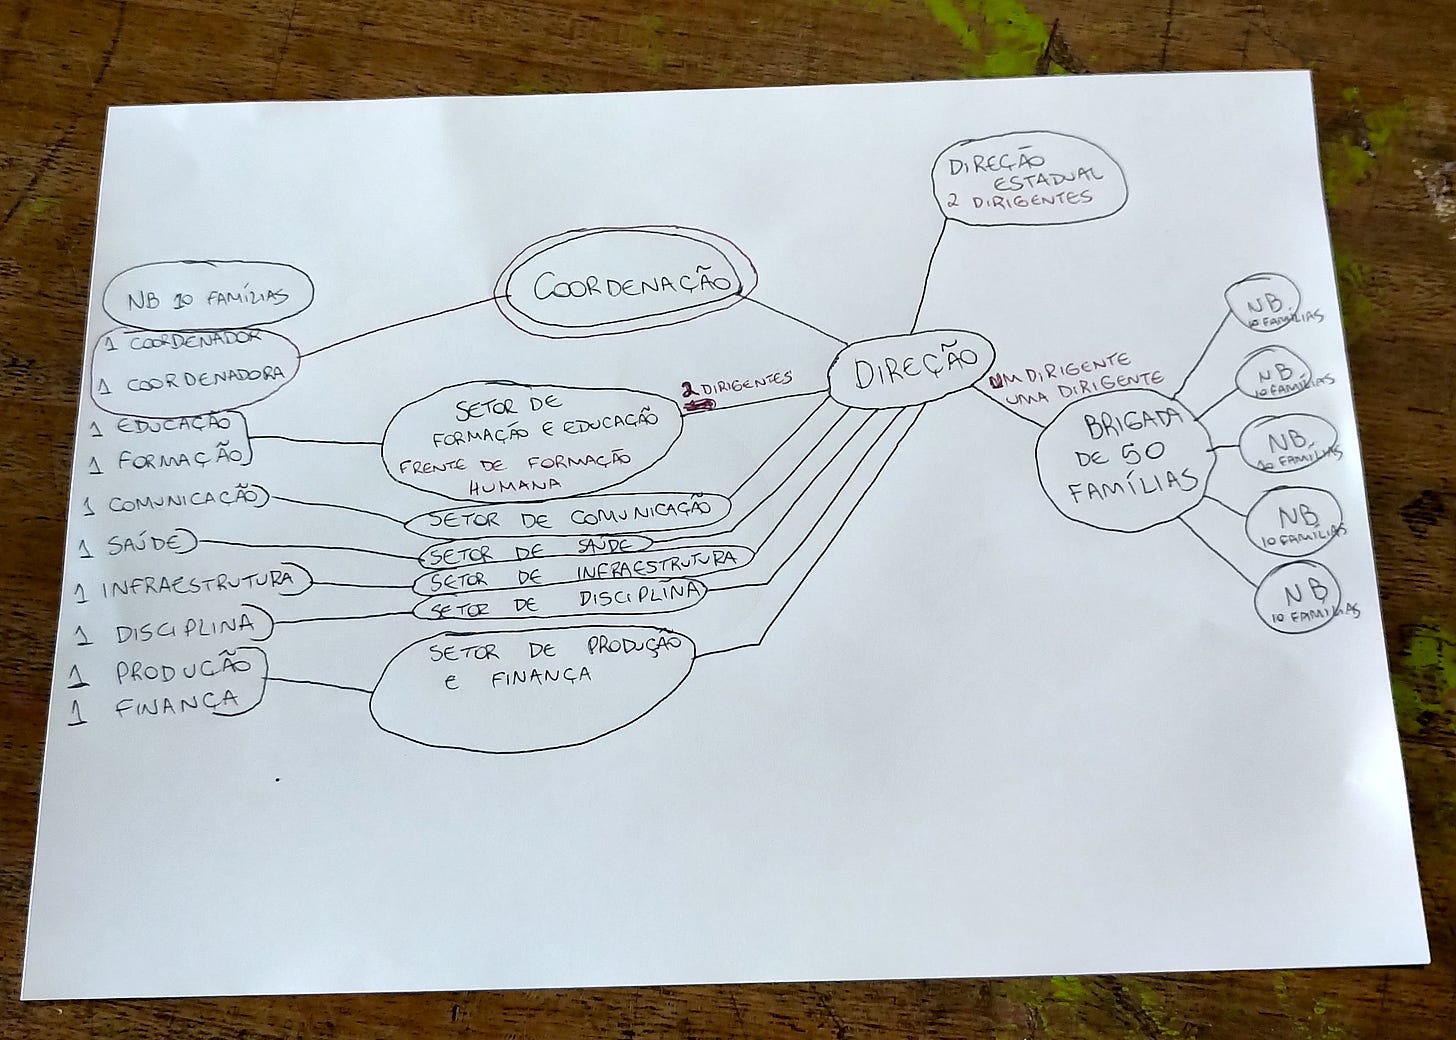 DIREÇÃO
ESTADUAL
2 DIRIGENTES
COORDENAÇÃO
NB 10 FAMÍLIAS
1 COORDENADOR
1 COORDENADORA
1 EDUCAÇÃO
1 FORMAÇÃO
1 COMUNICAÇÃO
1 SAÚDE
1 INFRAESTRUTURA
1 DISCIPLINA
1 PRODUÇÃO
1 FINANÇA
SETOR DE
FORMAÇÃO E EDUCAÇÃO
FRENTE DE FORMAÇÃO
HUMANA
SETOR DE COMUNICAÇÃO
SETOR DE SAÚDE
SETOR DE INFRAESTRUTURA
SETOR DE DISCIPLINA
SETOR DE PRODUÇÃO
E FINANÇA
2 DIRIGENTES
DIREÇÃO
UM DIRIGENTE
UMA DIRIGENTE
BRIGADA
DE 50
FAMÍLIAS
NB
10 FAMÍLIAS
NB
10 FAMÍLIAS
NB
10 FAMÍLIAS
NB
10 FAMÍLIAS
NB
10 FAMÍLIAS